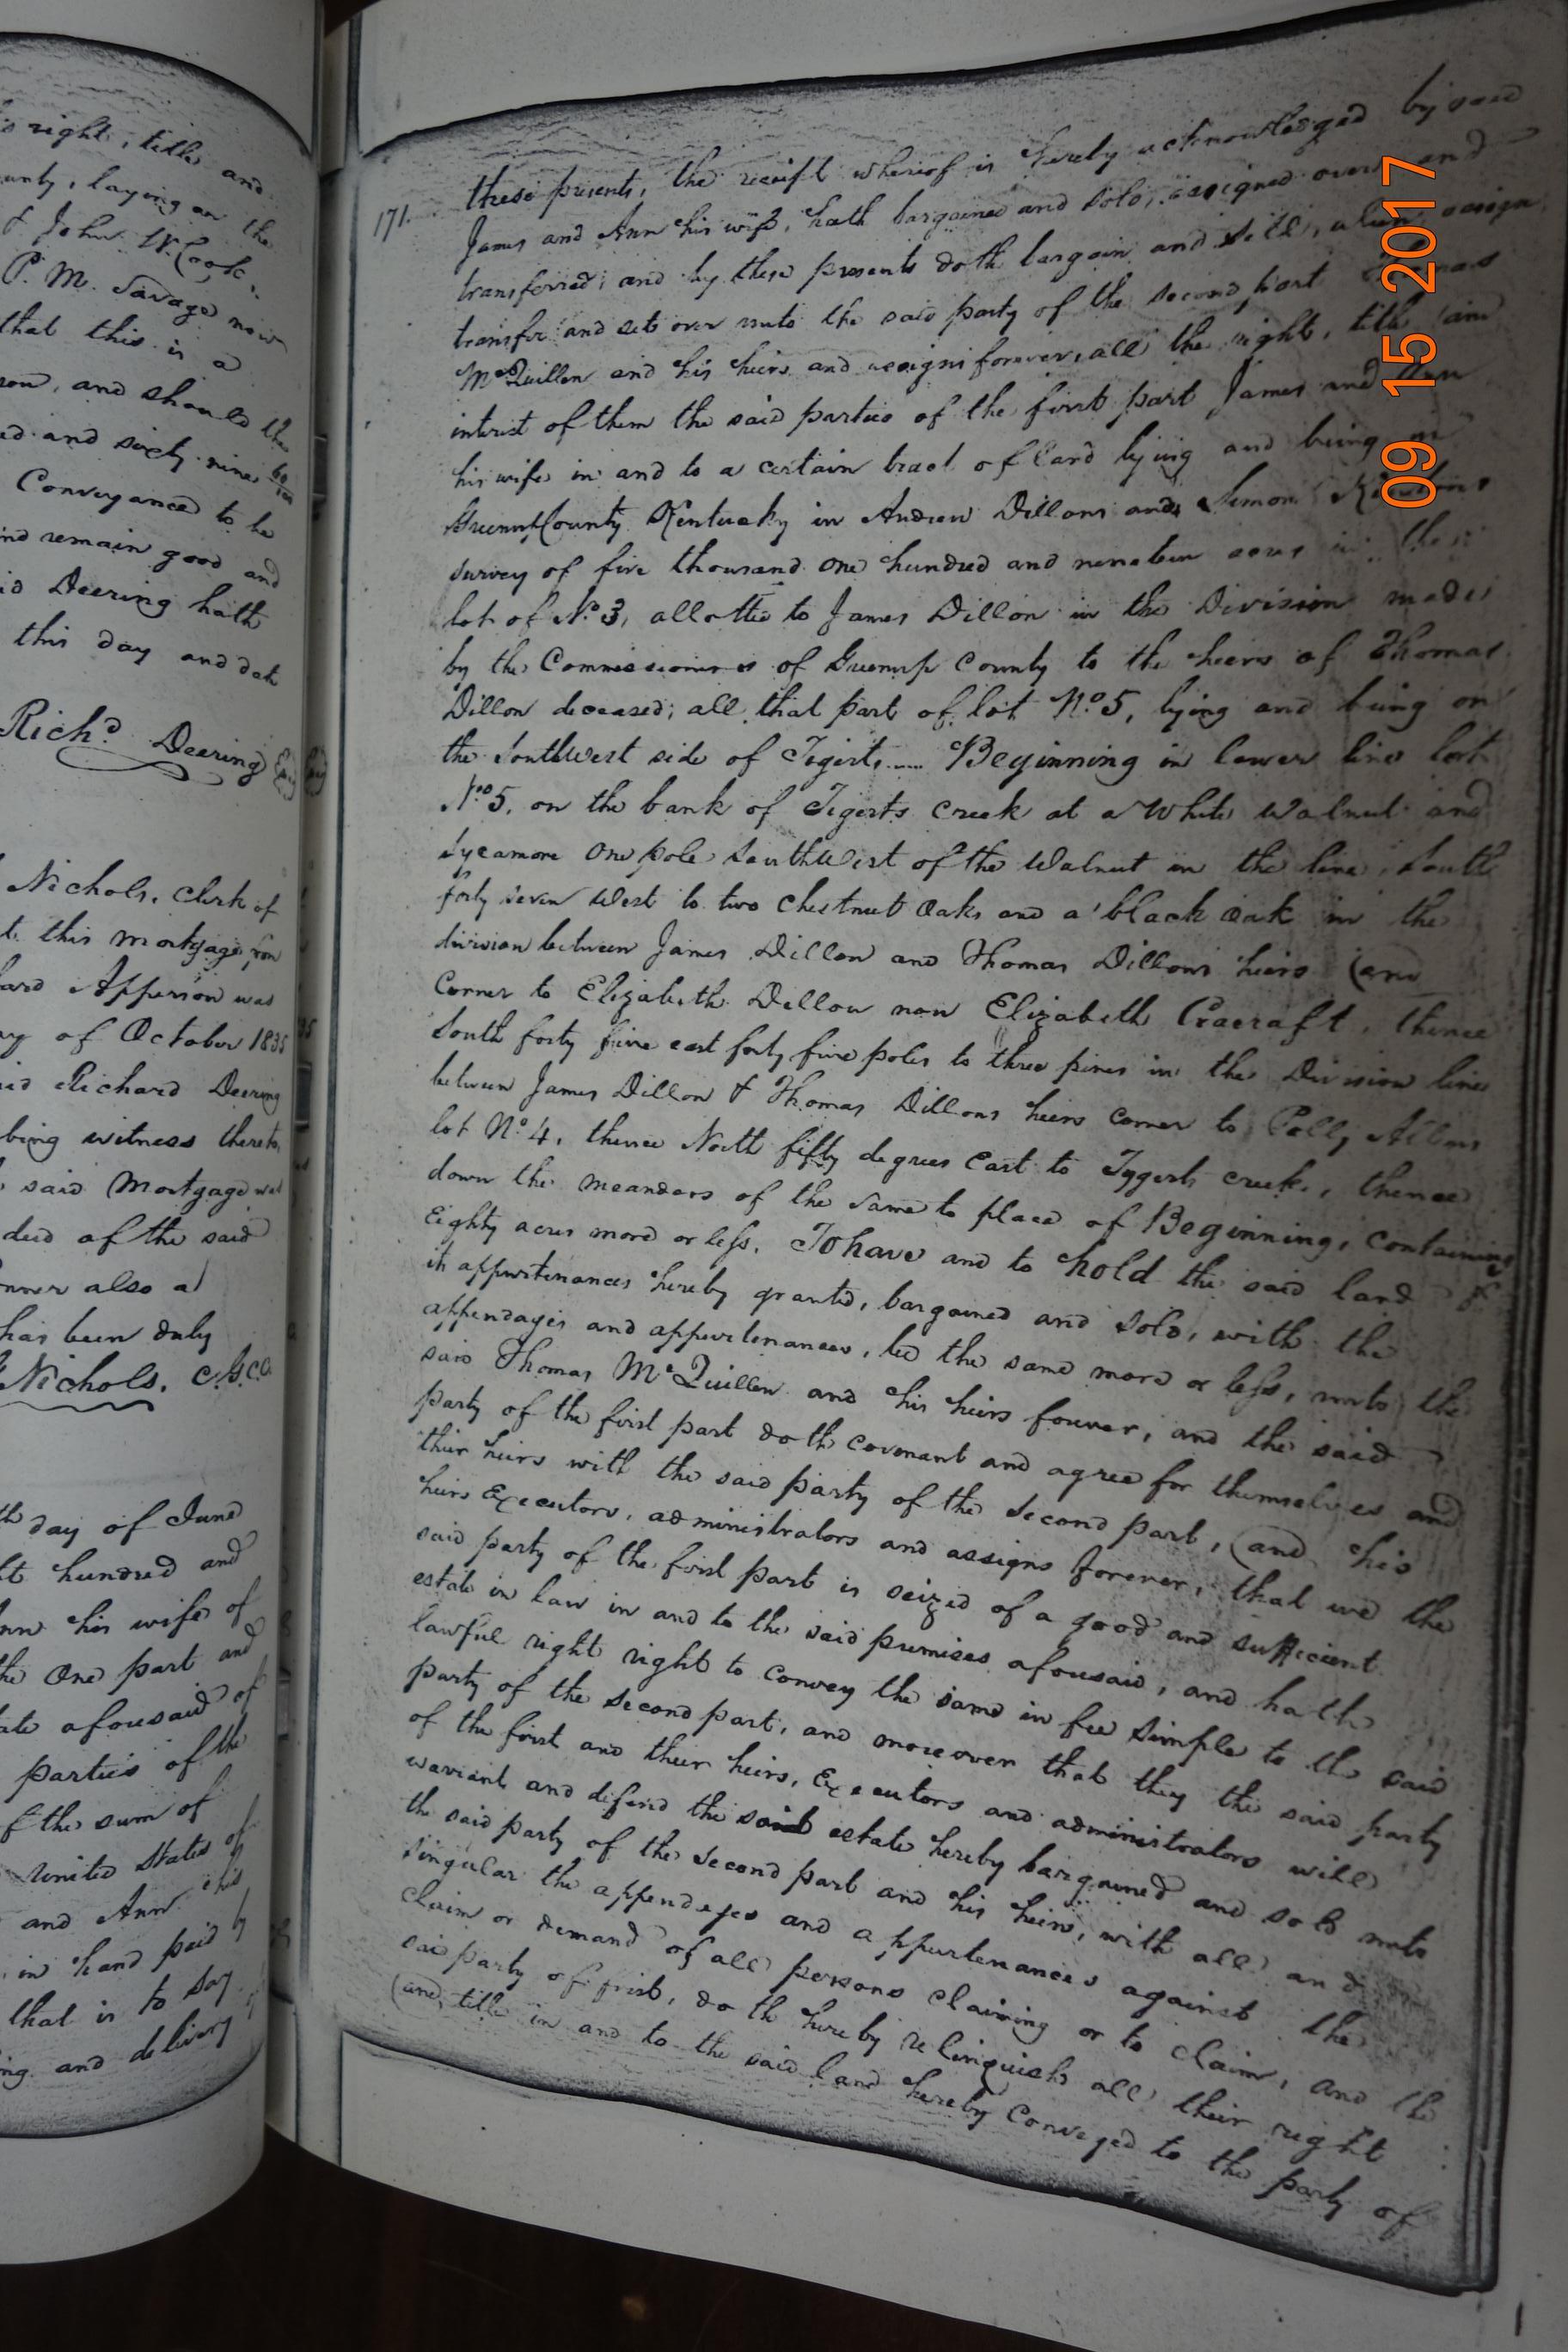 right, title and
unty, laying on the
& John W. Cook,
P. M. Savage now
that this is a
son, and should the
ed and sixty nine
Conveyance to be
and remain good and
id Deering hath
this day and date
Richd Deering
Nichols, Clerk of
t this mortgage from
ard Apperson was
ay of October 1835
id Richard Deering
being witness thereto,
said Mortgage was
deed of the said
nner also a
has been duly
Nichols, C.G.C.C.
th day of June
ht hundred and
Ann his wife of
the One part and
ate afousaid of
parties of the
f the sum of
United States of
and Ann his
in hand paid by
that is to say
ing and delivery
171.
these presents, the receipt whereof is hereby acknowledged by said
James and Ann his wife, hath bargained and sold, assigned over and
transferred; and by these presents doth bargain and sell, alien, assign
transfer and sets over unto the said party of the second part Thomas
McQuillen and his heirs and assigns forever, all the right, title and
interest of them the said parties of the first part James and Ann
his wife in and to a certain tract of land lying and being in
Greenup County Kentucky in Andrew Dillons and Simon
survey of five thousand one hundred and nineteen acres in the
lot of No. 3, allotted to James Dillon in the Division made
by the Commissioners of Greenup County to the heirs of Thomas
Dillon deceased; all that part of lot No. 5, lying and being on
the Southwest side of Tigerts Beginning in lower line lott
No. 5, on the bank of Tigerts creek at a White Walnut and
Sycamore One pole SouthWest of the Walnut in the line, South
forty seven West to two Chestnut Oaks and a black oak in the
division between James Dillon and Thomas Dillons heirs (and
Corner to Elizabeth Dillow now Elizabeth Cracraft, thence
South forty five east forty five poles to three pines in the Division line
between James Dillon & Thomas Dillons heirs corner to Polly Allens
lot No. 4, thence North fifty degrees East to Tygerts creek, thence
down the meanders of the same to place of Beginning, containing
Eighty acres more or less, To have and to hold the said land &
its appurtenances hereby granted, bargained and sold, with the
appendages and appurtenances, be the same more or less, unto the
said Thomas McQuillen and his heirs forever, and the said
party of the first part doth covenant and agree for themselves and
their heirs with the said party of the second part, (and his
heirs Executors, administrators and assigns forever, that we the
said party of the first part is seized of a good and sufficient
estate in law in and to the said premises afousaid, and hath
lawful right right to convey the same in fee simple to the said
party of the second part, and moreover that they the said party
of the first and their heirs, Executors and administrators will
warrant and defend the said estate hereby bargained and sold unto
the said party of the second part and his heirs, with all and
singular the appendages and appurtenances against the
claim or demand of all persons claiming or to claim, and the
said party of first, doth hereby relinquish all their right
(and title in and to the said land hereby conveyed to the party of
09 15 2017